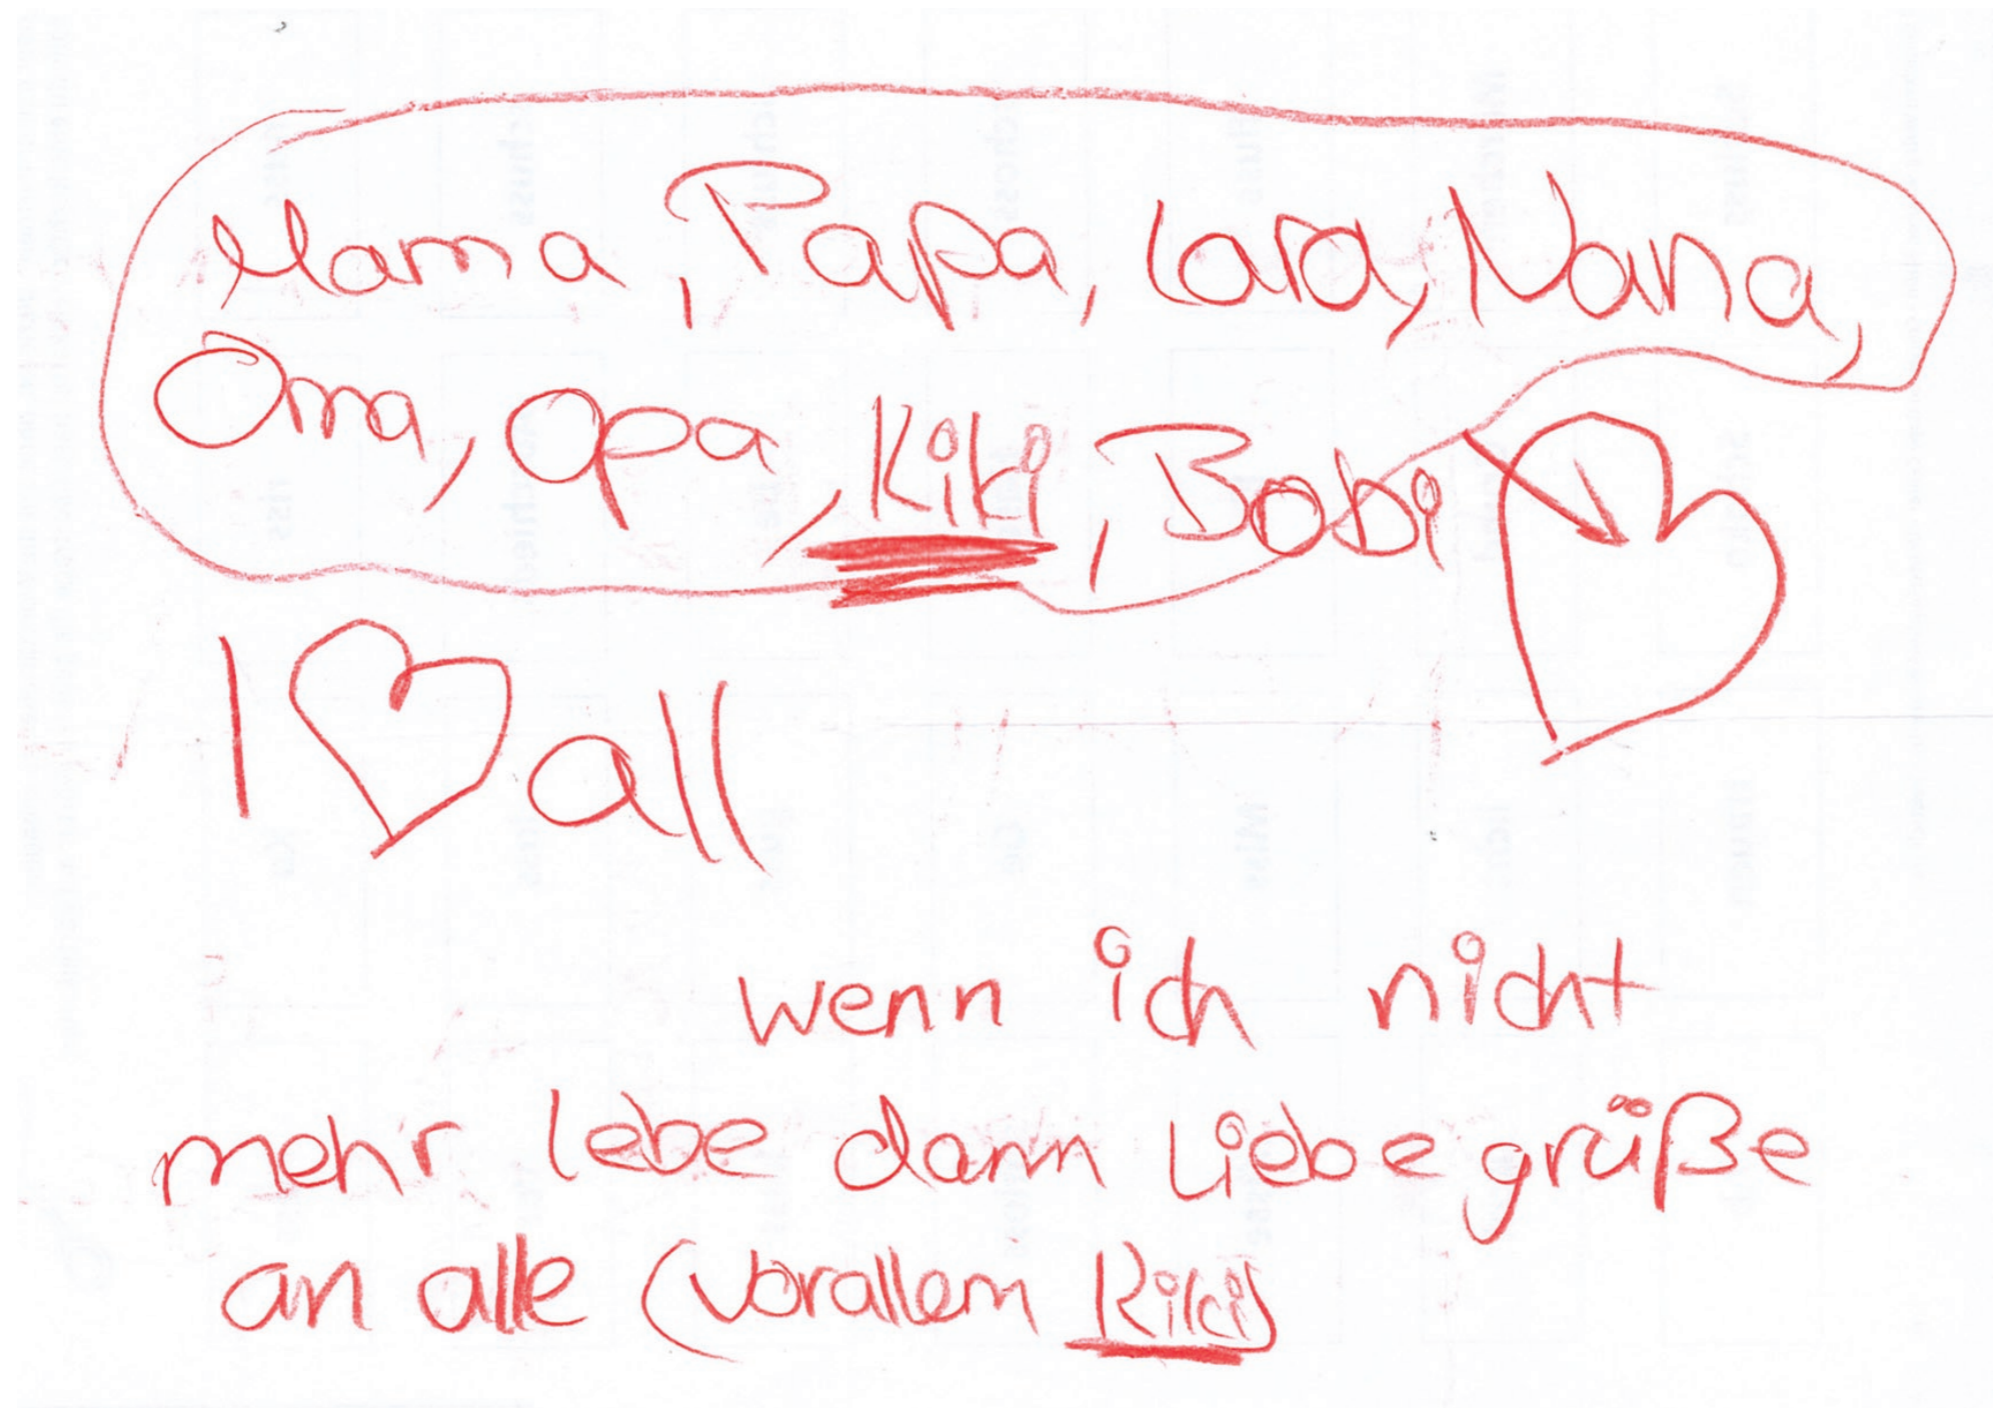 Mama, Papa, Lara, Nana,
Oma, Opa, Kiki, Bobi
I ♡ all
wenn ich nicht
mehr lebe dann Liebe grüße
an alle (vorallem Kiki)